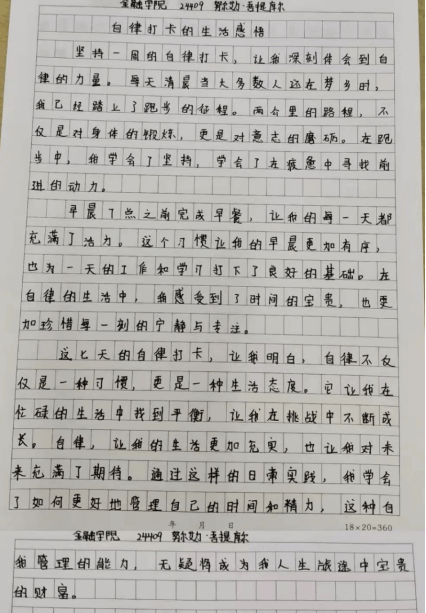 金融学院 24409 努尔勒·吾提库尔
自律打卡的生活感悟
坚持一周的自律打卡，让我深刻体会到自
律的力量。每天清晨当大多数人还在梦乡时，
我已经踏上了跑步的征程。两公里的路程，不
仅是对身体的锻炼，更是对意志的磨砺。在跑
步中，我学会了坚持，学会了在疲惫中寻找前
进的动力。
早晨7点之前完成早餐，让我的每一天都
充满了活力。这个习惯让我的早晨更加有序，
也为一天的工作和学习打下了良好的基础。在
自律的生活中，我感受到了时间的宝贵，也更
加珍惜每一刻的宁静与专注。
这七天的自律打卡，让我明白，自律不仅
仅是一种习惯，更是一种生活态度。它让我在
忙碌的生活中找到平衡，让我在挑战中不断成
长。自律，让我的生活更加充实，也让我对未
来充满了期待。通过这样的日常实践，我学会
了如何更好地管理自己的时间和精力，这种自
年 月 日 18×20=360
金融学院 24409 努尔勒·吾提库尔
我管理的能力，无疑将成为我人生旅途中宝贵
的财富。